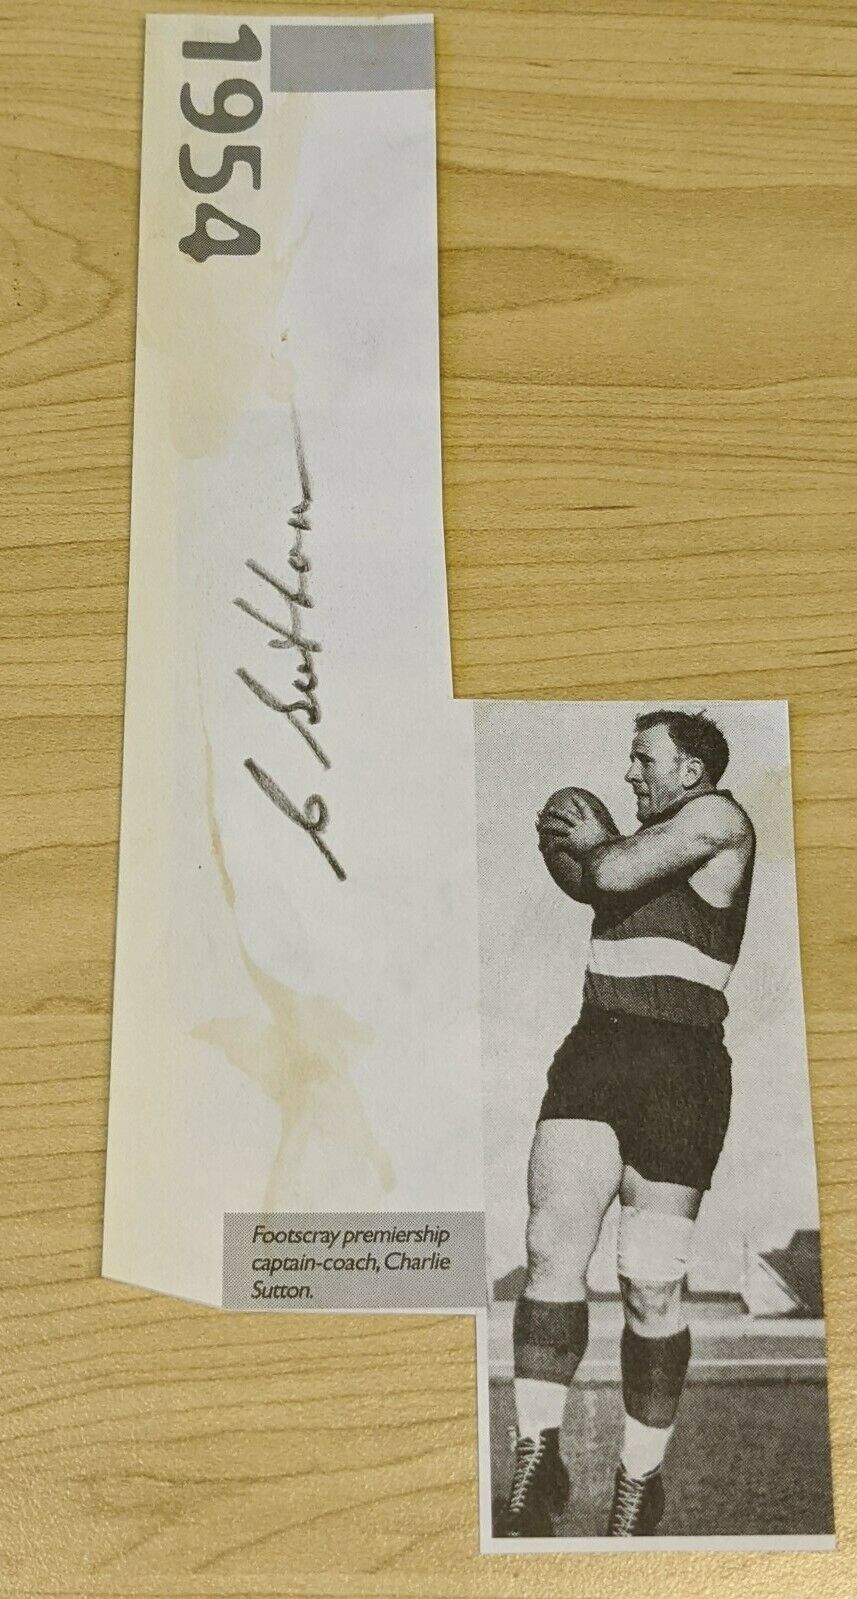 1954
C Sutton
Footscray premiership
captain-coach, Charlie
Sutton.